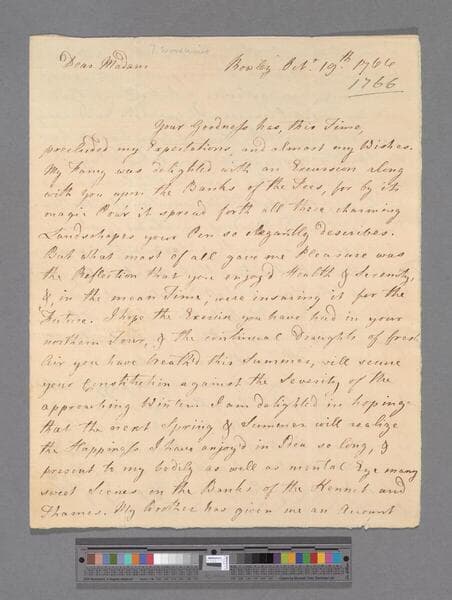 Dear Madam
Boxley Oct.r 19th 1766
1766
Your Goodness has, this Time,
precluded my Expectations, and almost my Wishes.
My Fancy was delighted with an Excursion along
with you upon the Banks of the Tees, for by its
magic Pow'r it spread forth all those charming
Landschapes your Pen so elegantly describes.
But what most of all gave me Pleasure was
the Reflection that you enjoy'd Health & Serenity,
&, in the mean Time, were insuring it for the
Future. I hope the Exercise you have had in your
northern Tour, & the continual Draughts of fresh
Air you have breath'd this Summer, will secure
your Constitution against the Severity of the
approaching Winter. I am delighted in hoping
that the next Spring & Summer will realize
the Happiness I have enjoy'd in Idea so long, &
present to my bodily as well as mental Eye many
sweet Scenes on the Banks of the Kennet and
Thames. My brother has given me an Account